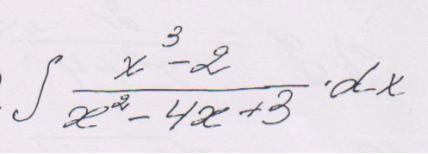 ∫ (x³ - 2)/(x² - 4x + 3) · dx